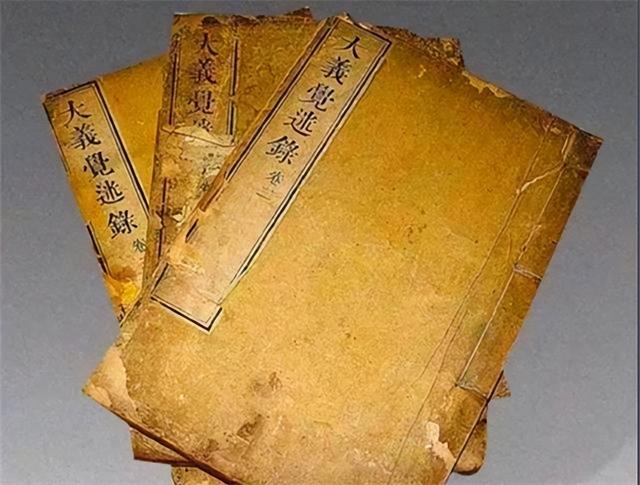 大義覺迷錄 卷二
大義覺
大義覺迷錄 卷